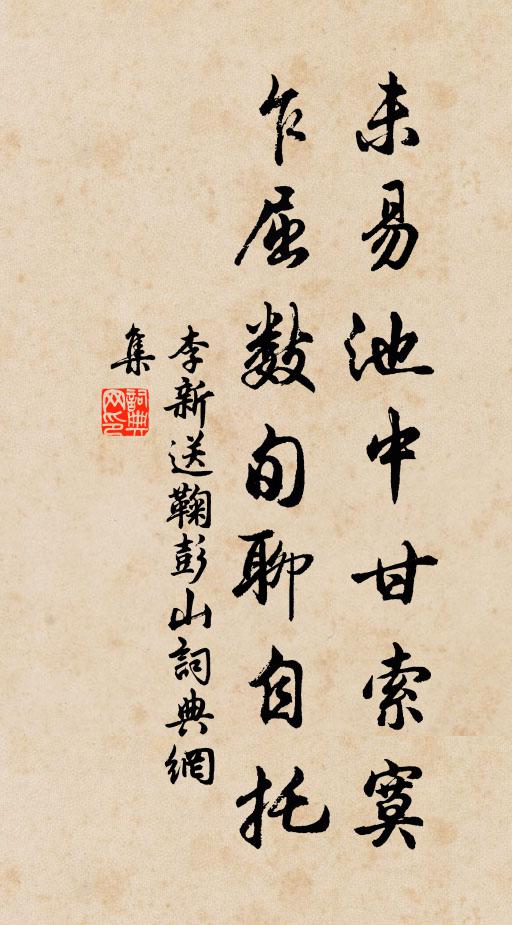 未易池中甘索寞
乍屈数旬聊自托
李新送鞠彭山詞典網
集
詞典
网印